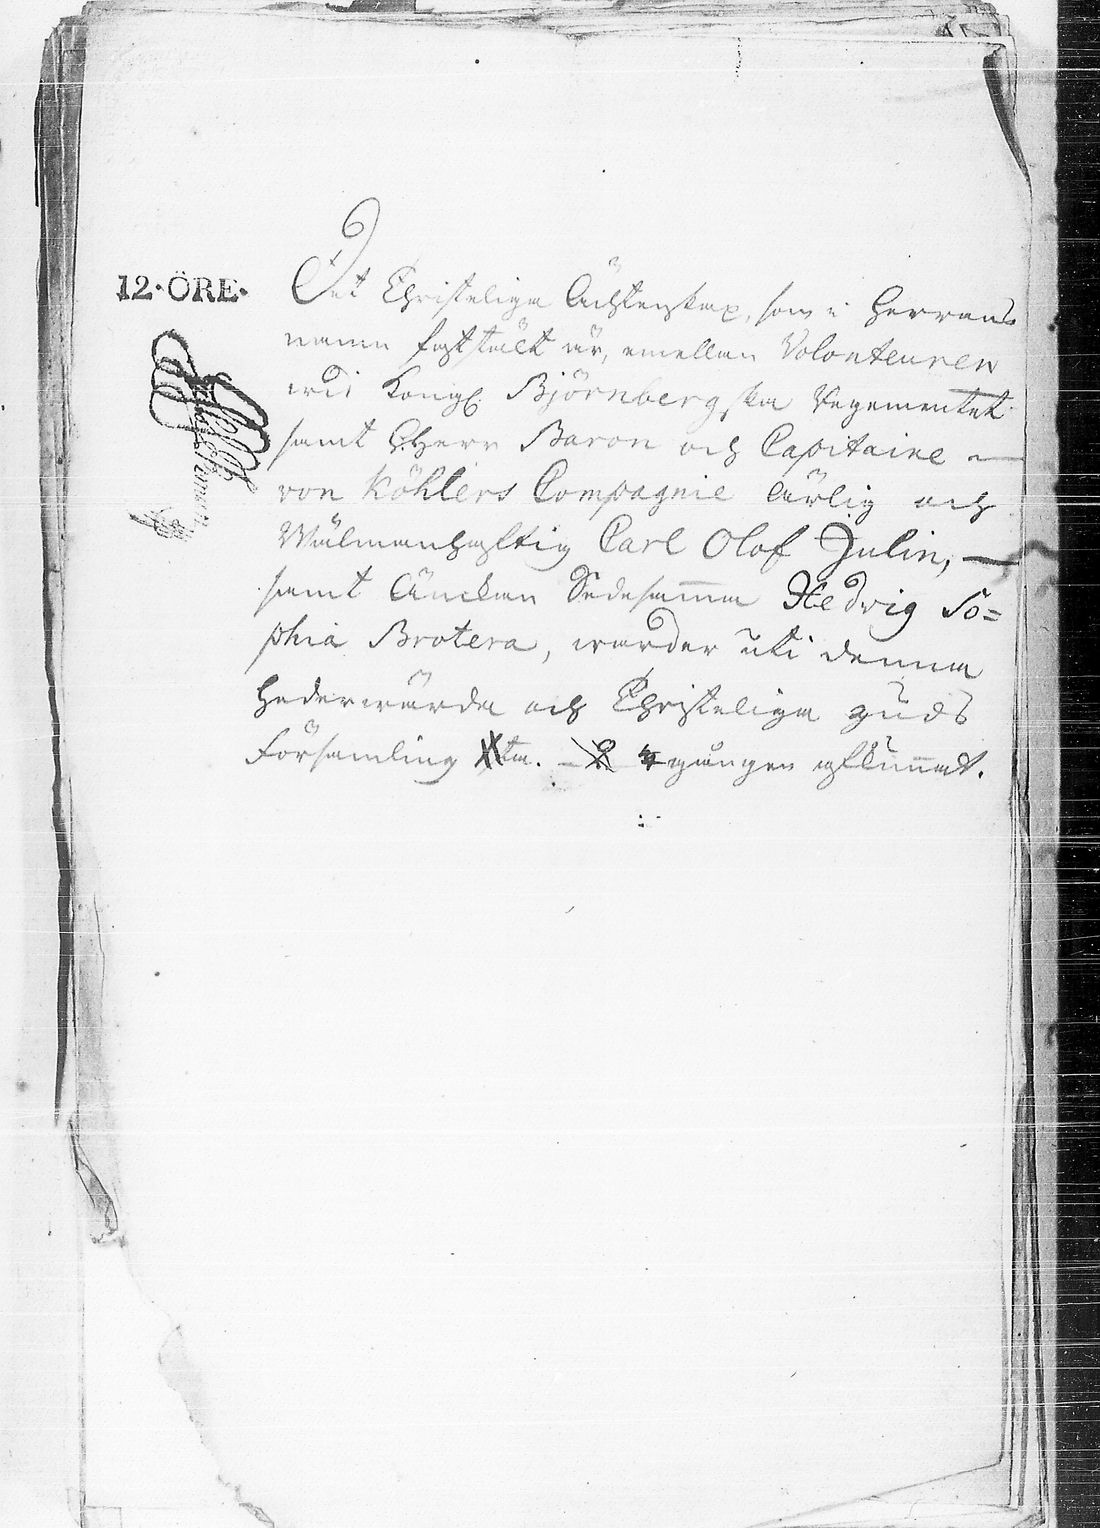 12·ÖRE·
Det Christeliga Ächtenskap, som i Herrans
namn fastställt är, emellan Volonteuren
wid Kongl. Björnbergska Regementet
samt Herr Baron och Capitaine
von Köhlers Compagnie Ärlig och
Wälmanhaftig Carl Olof Julin,
samt Änckan Dedesamma Hedvig So=
phia Brotera, warder uti denna
Hederwärda och Christeliga Guds
Församling gången aflÿsat.